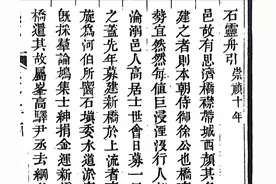 石靈舟引 崇禎十年
邑故有思濟橋襟帶城西頹其
建之者則本朝侍御徐公也橋
勢宜然然每值巨浸淫沒行人
淪溺邑人高居士世會日募一
之蓋先年募建新橋於上流者
施為河伯所嚙石塡委水道淤
旣採羣論塢集士紳捐金運新
橋還其故屬峯高驛尹丞去綱